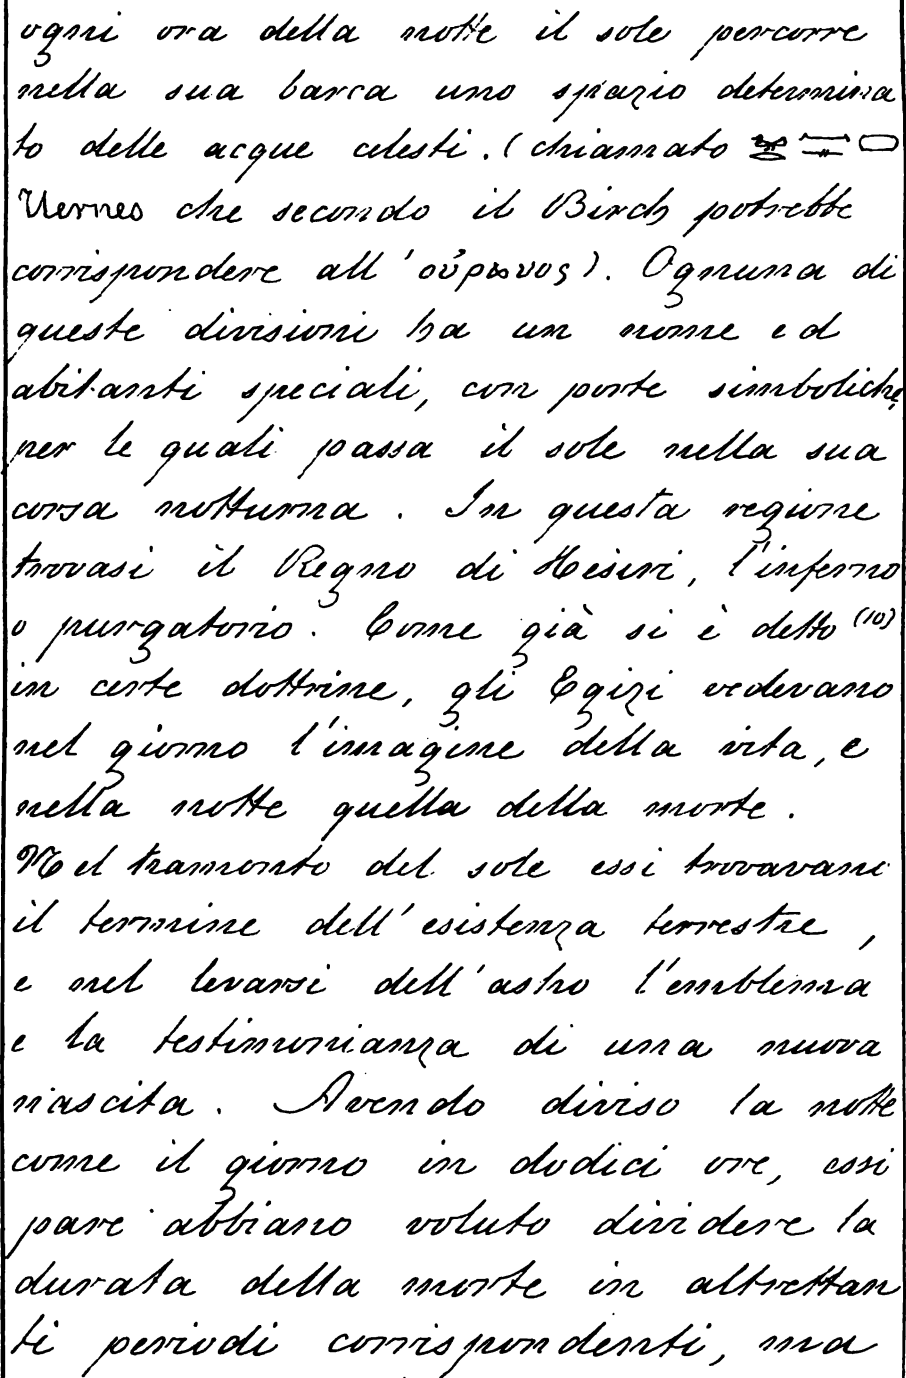 ogni ora della notte il sole percorre
nella sua barca uno spazio determina
to delle acque celesti. (chiamato
Uernes che secondo il Birch potrebbe
corrispondere all' οὐρανος). Ognuna di
queste divisioni ha un nome ed
abitanti speciali, con porte simboliche,
per le quali passa il sole nella sua
corsa notturna. In questa regione
trovasi il Regno di Hesiri, l'inferno
o purgatorio. Come già si è detto (10)
in certe dottrine, gli Egizi vedevano
nel giorno l'imagine della vita, e
nella notte quella della morte.
Nel tramonto del sole essi trovavano
il termine dell'esistenza terrestre,
e nel levarsi dell'astro l'emblema
e la testimonianza di una nuova
nascita. Avendo diviso la notte
come il giorno in dodici ore, essi
pare abbiano voluto dividere la
durata della morte in altrettan
ti periodi corrispondenti, ma